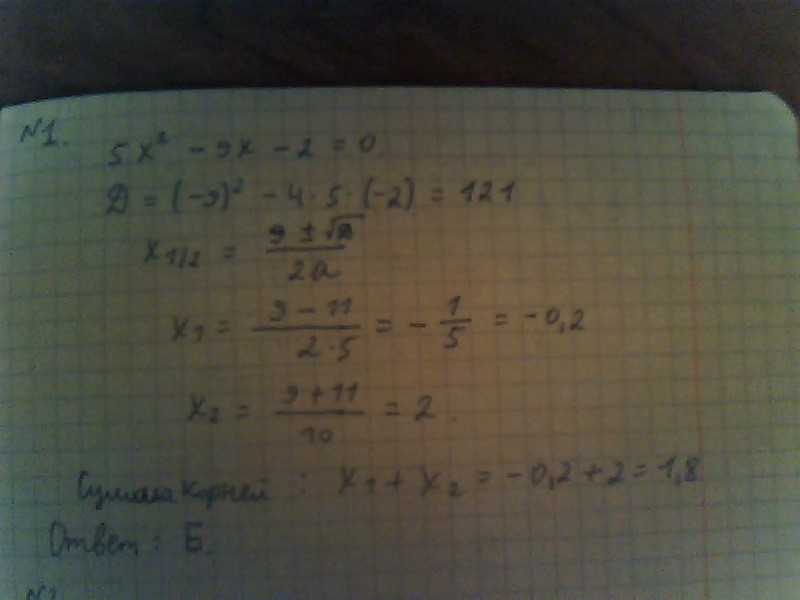 №1.
5x² - 9x - 2 = 0.
D = (-9)² - 4·5·(-2) = 121
x₁/₂ = (9 ± √D)/(2a)
x₁ = (9 - 11)/(2·5) = - 1/5 = -0,2
x₂ = (9 + 11)/10 = 2.
Сумма корней : x₁ + x₂ = -0,2 + 2 = 1,8
Ответ : Б.